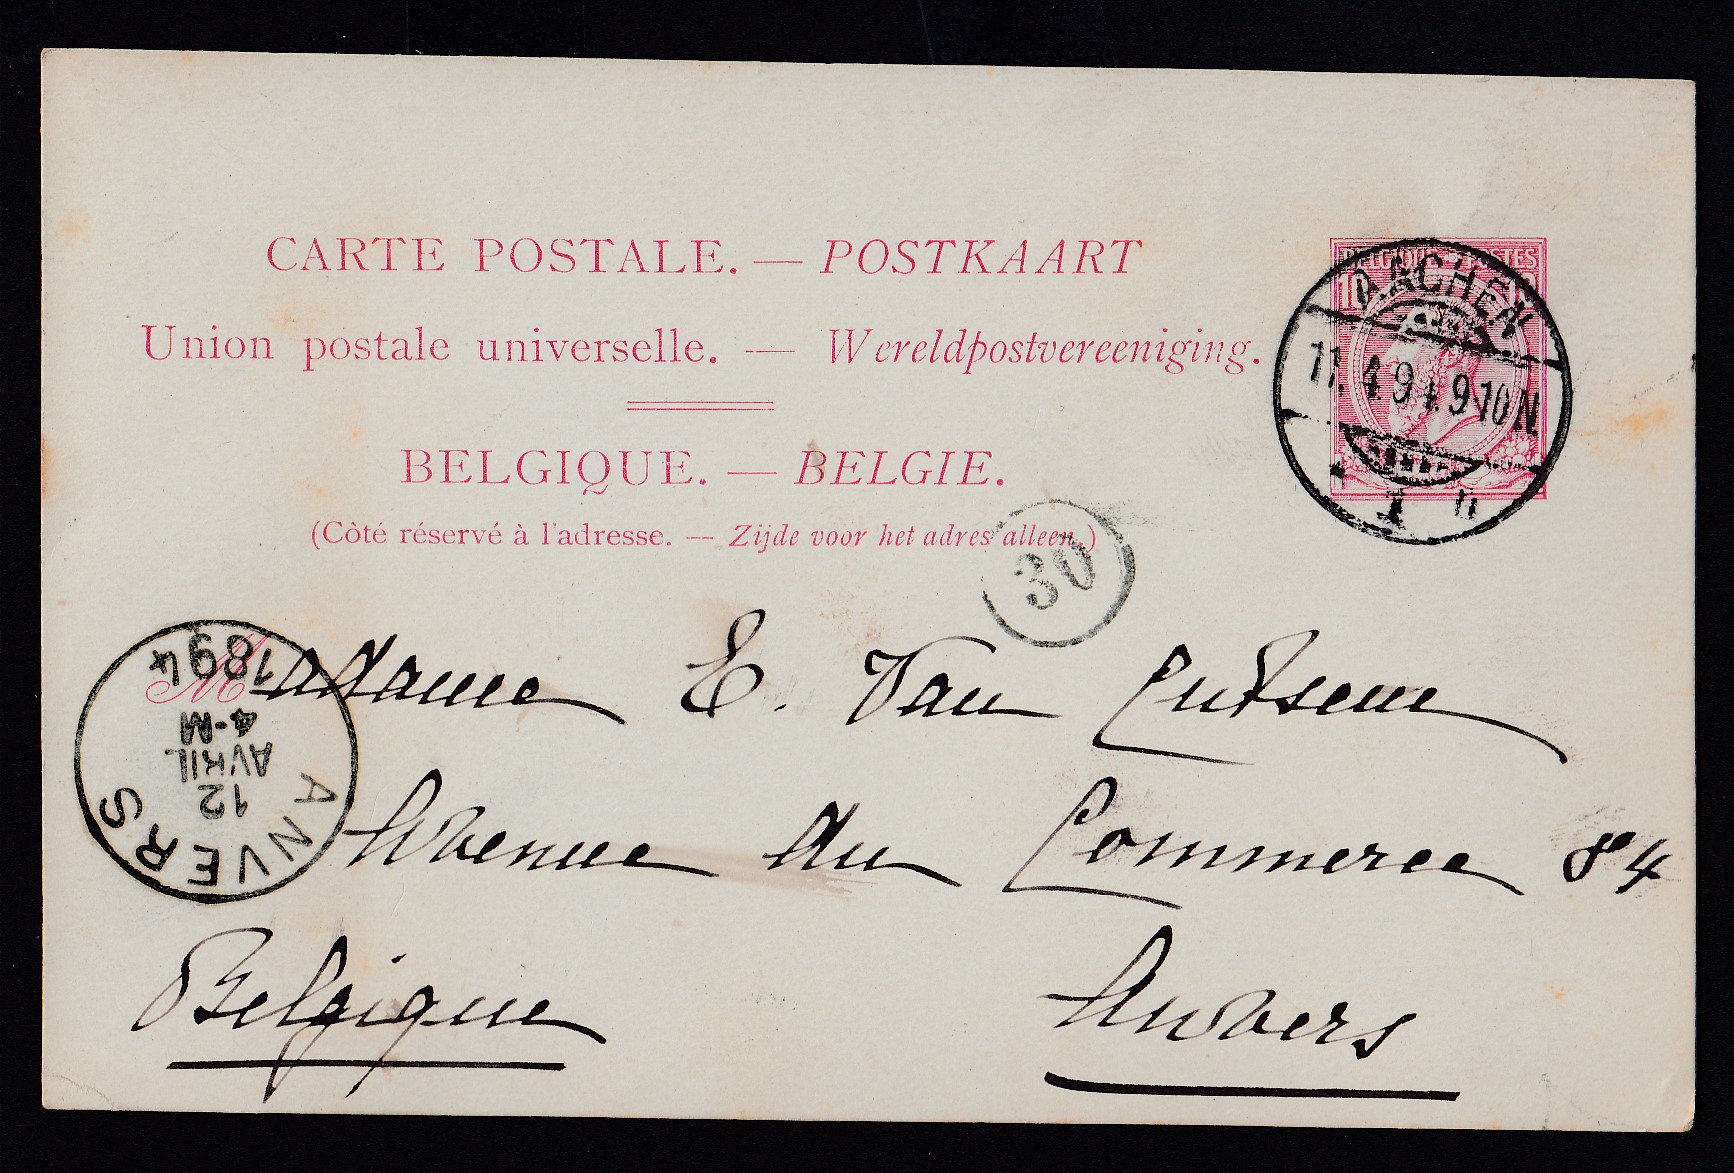 CARTE POSTALE. — POSTKAART
Union postale universelle. — Wereldpostvereeniging.
BELGIQUE. — BELGIE.
(Côté réservé à l'adresse. — Zijde voor het adres alleen.)
BELGIQUE POSTES
10
AACHEN
11.4.94.9-10N.
* 1 n
30
ANVERS
12
AVRIL
4-M
1894
Madame E. Van Cutsem
Avenue du Commerce 84
Belgique Anvers